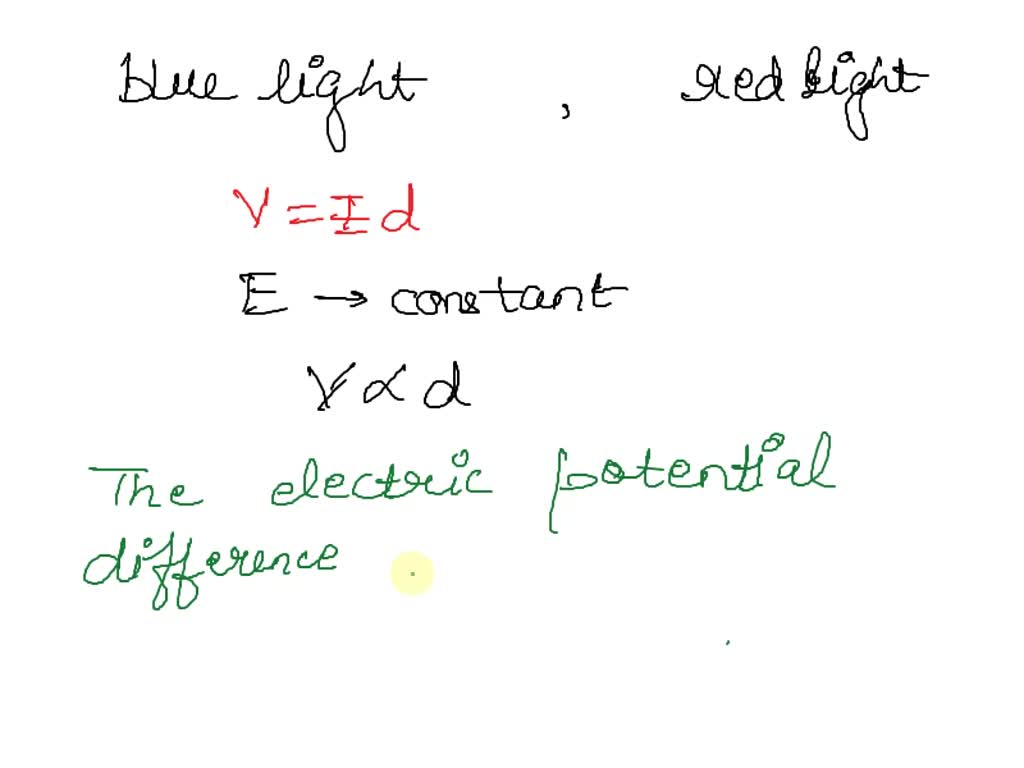 blue light , red light
V = I d
E → constant
V ∝ d
The electric potential
difference